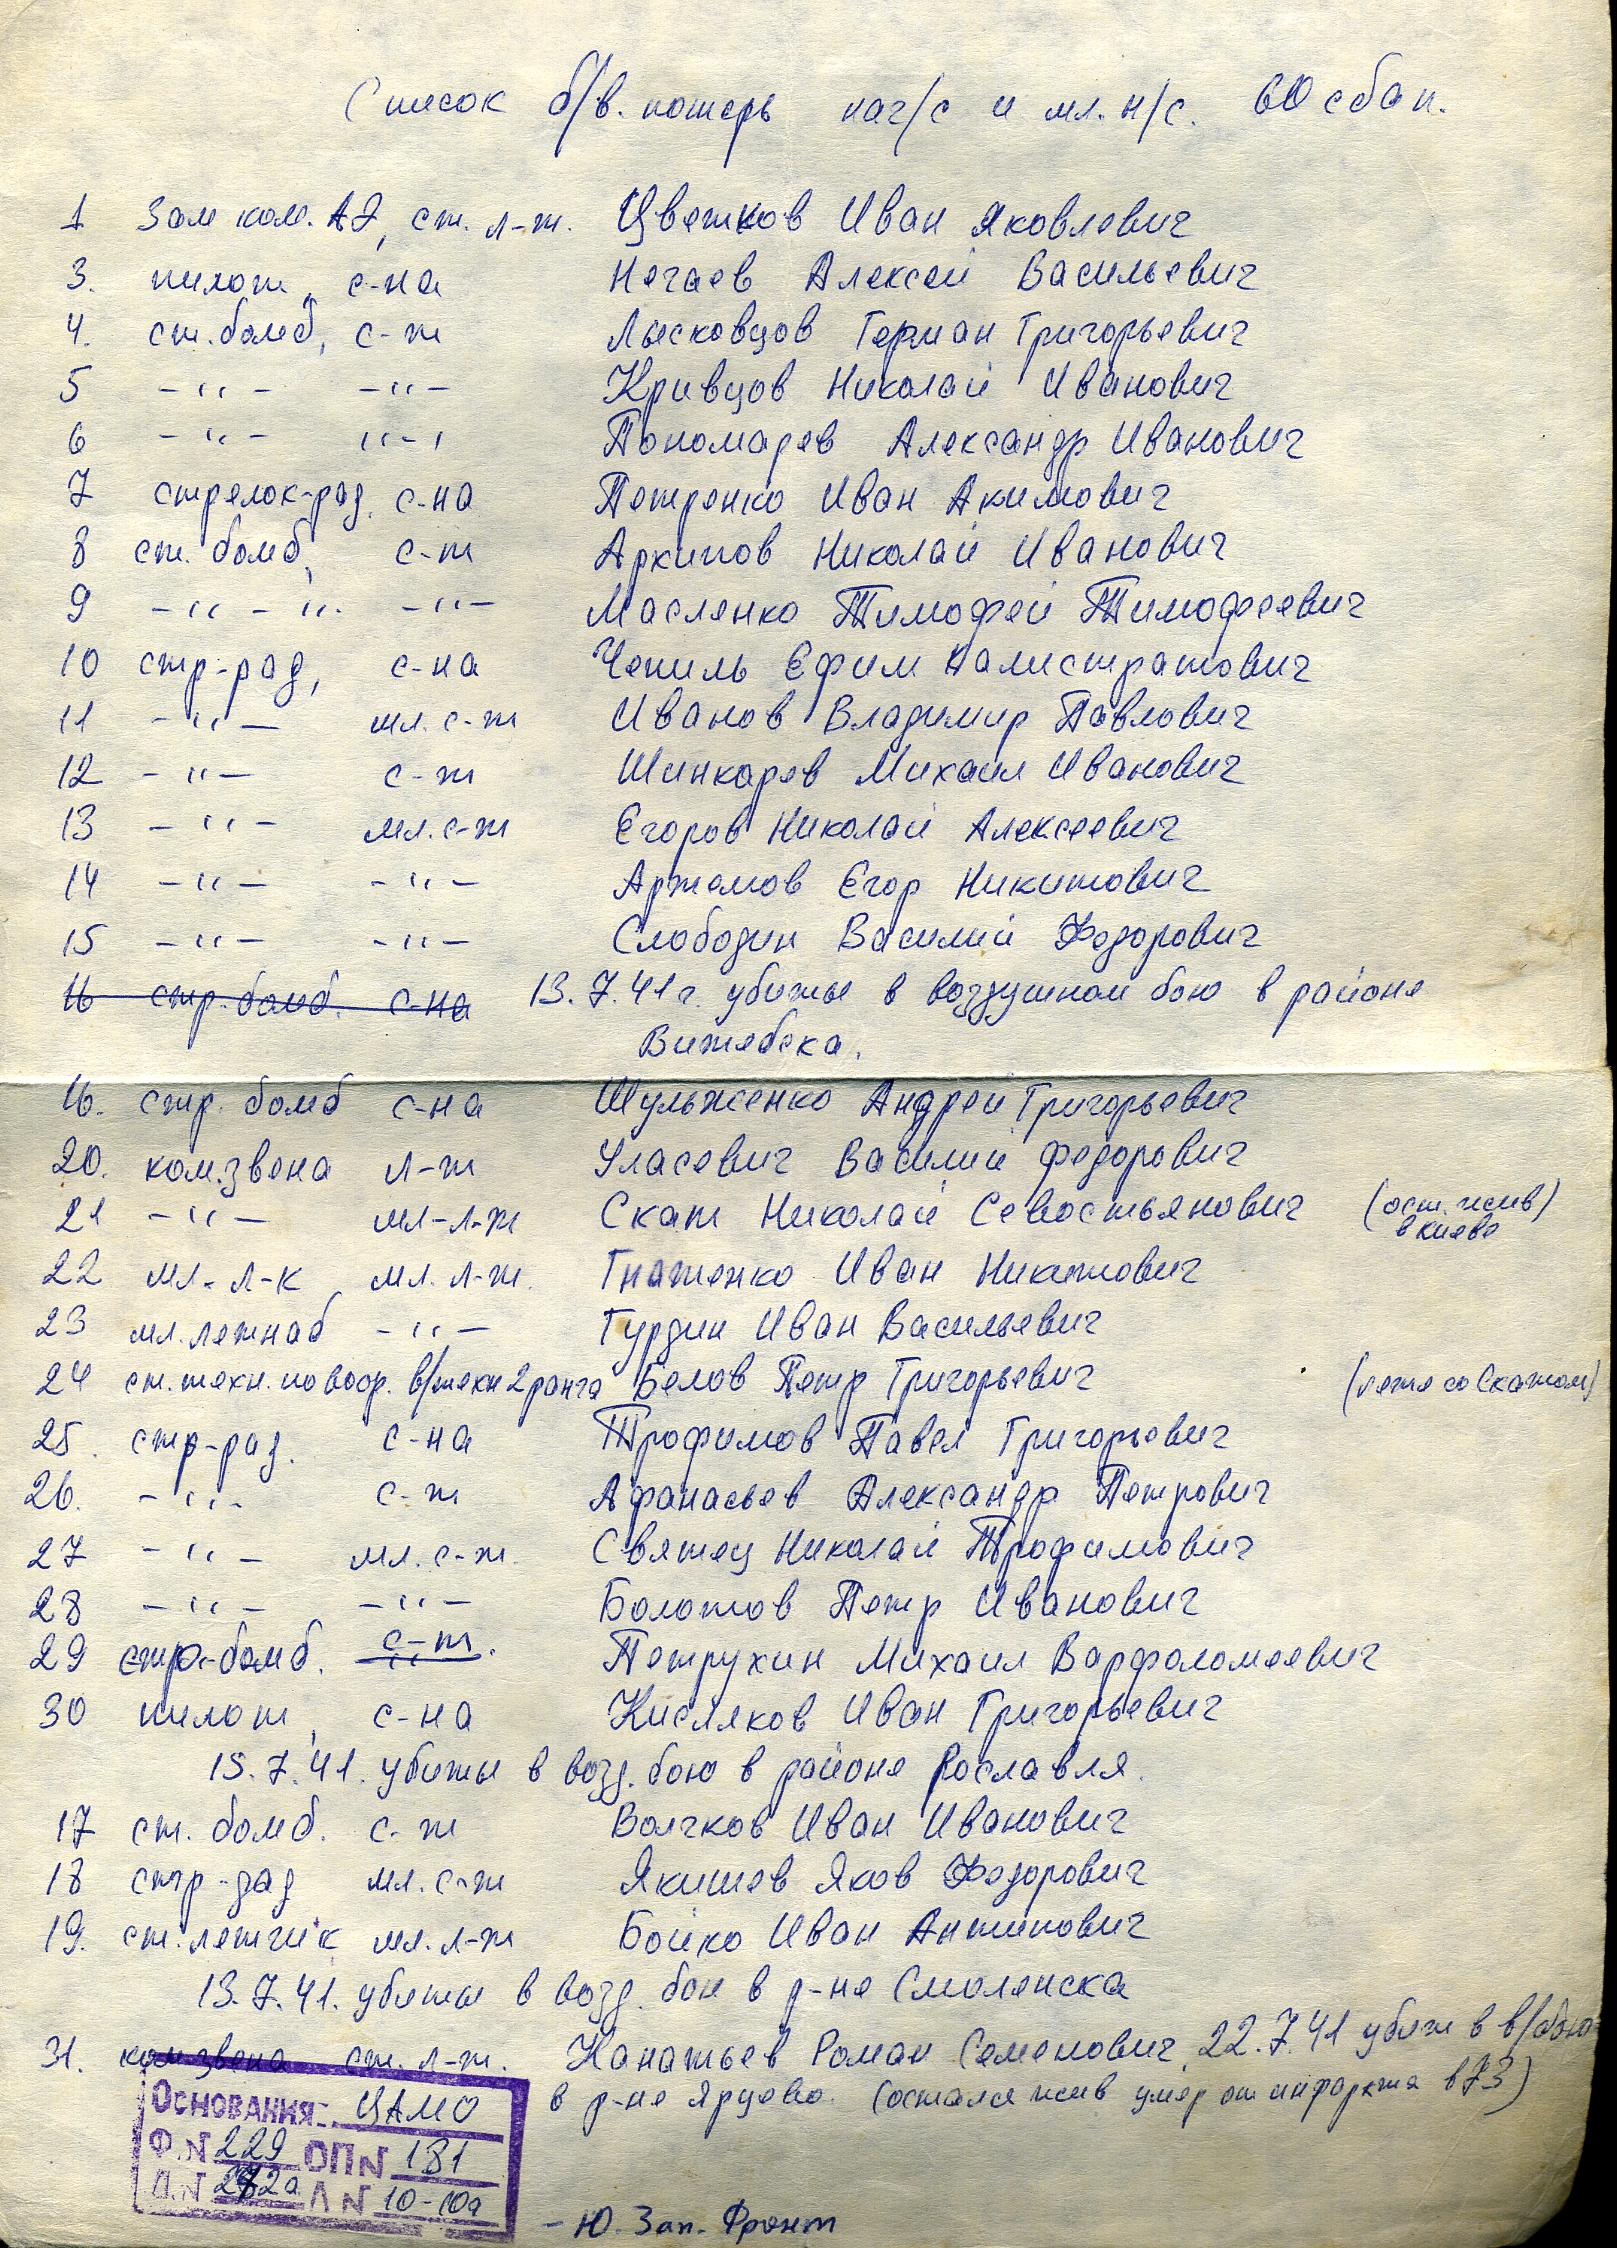 Список б/в. потерь нач/с и мл. н/с. 60 сбап.
1 Зам ком. АЭ, ст. л-т. Цветков Иван Яковлевич
3. пилот, с-на Нечаев Алексей Васильевич
4. ст. бомб, с-т Лысковцов Герман Григорьевич
5 -"- -"- Кривцов Николай Иванович
6 -"- "-" Пономарев Александр Иванович
7 стрелок-рад. с-на Петренко Иван Акимович
8 ст. бомб, с-т Архипов Николай Иванович
9 -"-". -"- Масленко Тимофей Тимофеевич
10 стр-рад, с-на Чепиль Ефим Калистратович
11 -"- мл. с-т Иванов Владимир Павлович
12 -"- с-т Шинкарев Михаил Иванович
13 -"- мл. с-т Егоров Николай Алексеевич
14 -"- -"- Артемов Егор Никитович
15 -"- -"- Слободин Василий Федорович
16 стр. бомб. с-на 13.7.41 г. убиты в воздушном бою в районе
Витебска.
16. стр. бомб с-на Шульженко Андрей Григорьевич
20. ком. звена л-т Уласевич Василий Федорович
21 -"- мл-л-т Скат Николай Севостьянович (ост. жив)
в Киеве
22 мл. л-к мл. л-т. Гнатенко Иван Никитович
23 мл. летнаб -"- Гурдин Иван Васильевич
24 ст. техн. по воор. в/техн 2 ранга Белов Петр Григорьевич (летел со Скатом)
25. стр-рад. с-на Трофимов Павел Григорьевич
26. -"- с-т Афанасьев Александр Петрович
27 -"- мл. с-т. Святец Николай Трофимович
28 -"- -"- Болотов Петр Иванович
29 стр-бомб. с-т. Петрухин Михаил Варфоломеевич
30 пилот, с-на Кисляков Иван Григорьевич
15.7.41. убиты в возд. бою в районе Рославля.
17 ст. бомб. с-т Волчков Иван Иванович
18 стр-рад мл. с-т Якишев Яков Федорович
19. ст. летчик мл. л-т Бойко Иван Антипович
13.7.41. убиты в возд. бою в р-не Смоленска
31. ком. звена ст. л-т. Канатьев Роман Семенович, 22.7.41 убит в в/бою
в р-не Ярцево. (остался жив умер от инфаркта в 73)
Основания: ЦАМО
Ф. № 229 ОП № 181
Д. № Л № 10-10а
- Ю. Зап. Фронт